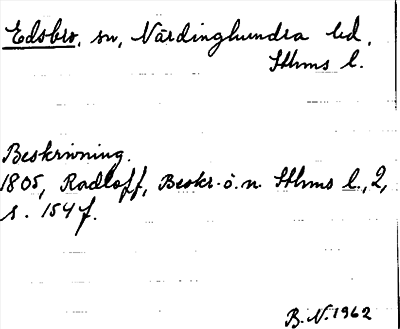 Edsbro, sn, Närdinghundra hd.
Sthms l.
Beskrivning.
1805, Radloff, Beskr. ö. n. Sthms l., 2,
s. 154 f.
B. N. 1962